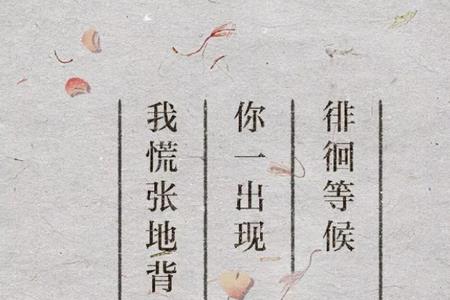 徘徊等候
你一出现
我慌张地背